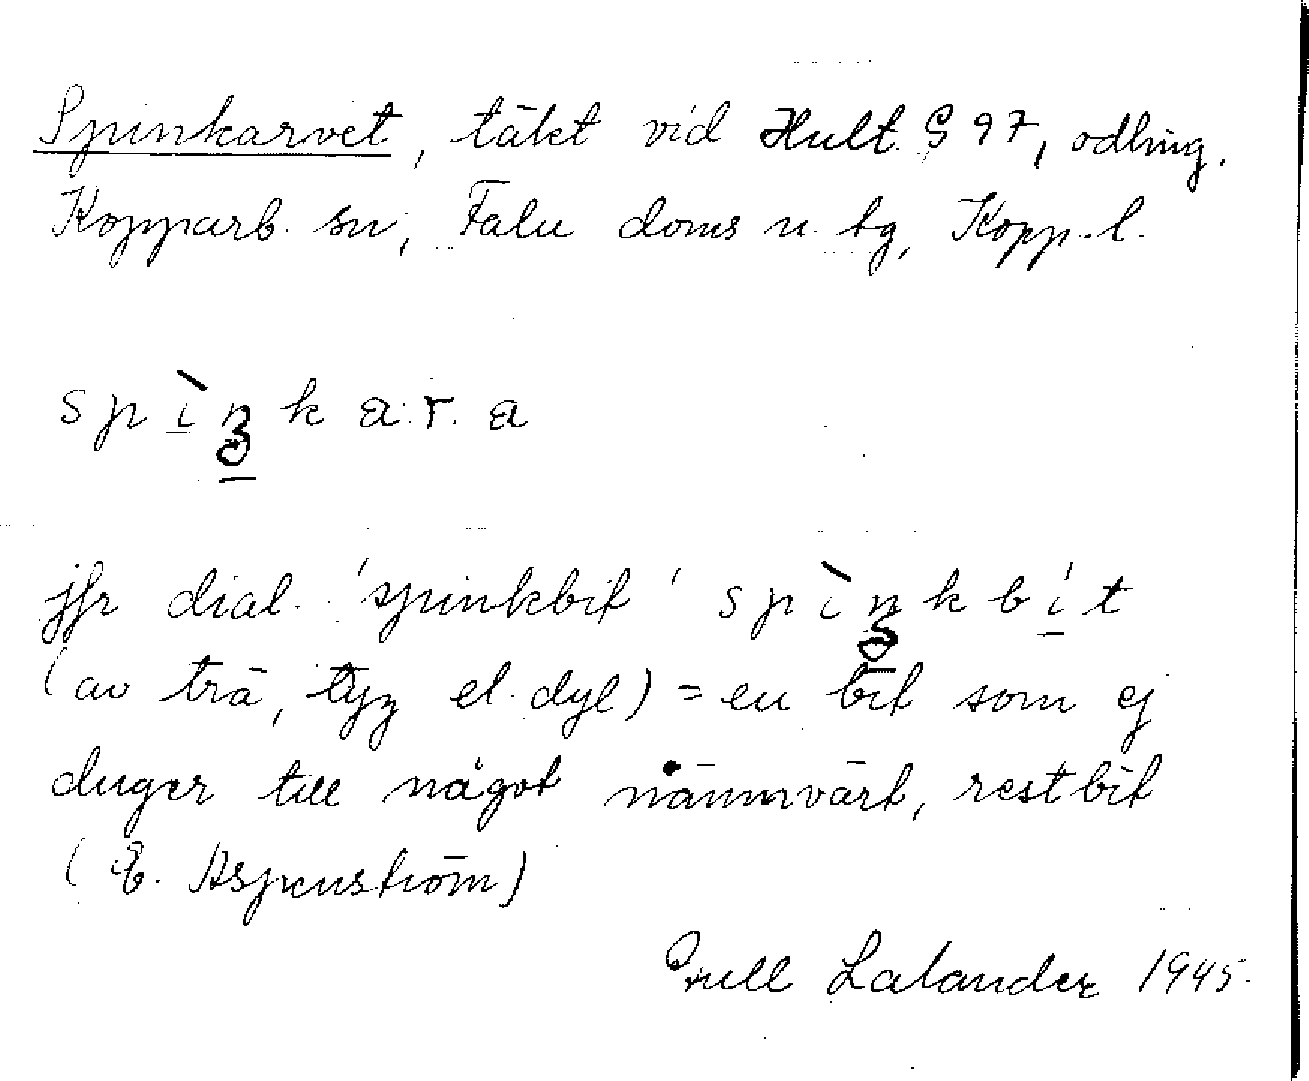 Spinkarvet, täkt vid Hult. § 97, odling.
Kopparb. sn, Falu doms n. tg, Kopp. l.
spìŋkara
jfr dial. 'spinkbit' spìŋkbít
(av trä, tyg el. dyl) = en bit som ej
duger till något nämnvärt, restbit
(E. Aspenström)
Gull Lalander 1945.